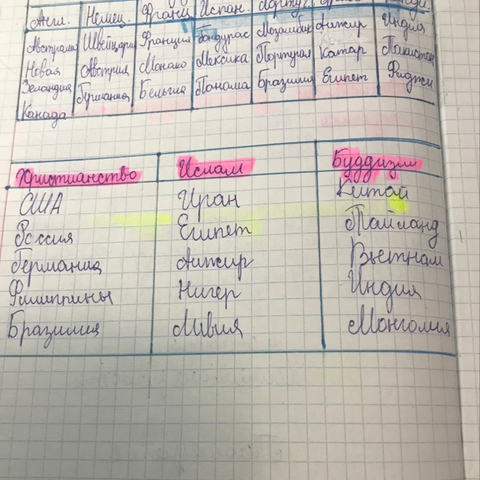 Англ. Немец. Франц Испан.
Австралия Швейцария Франция Гондурас Мозамбик Алжир Индия
Новая Австрия Монако Мексика Португал Катар Пакистан
Зеландия Германия Бельгия Панама Бразилия Египет Фиджи
Канада
Христианство Ислам Буддизм
США Иран Китай
Россия Египет Тайланд
Германия Алжир Вьетнам
Филиппины Нигер Индия
Бразилия Ливия Монголия